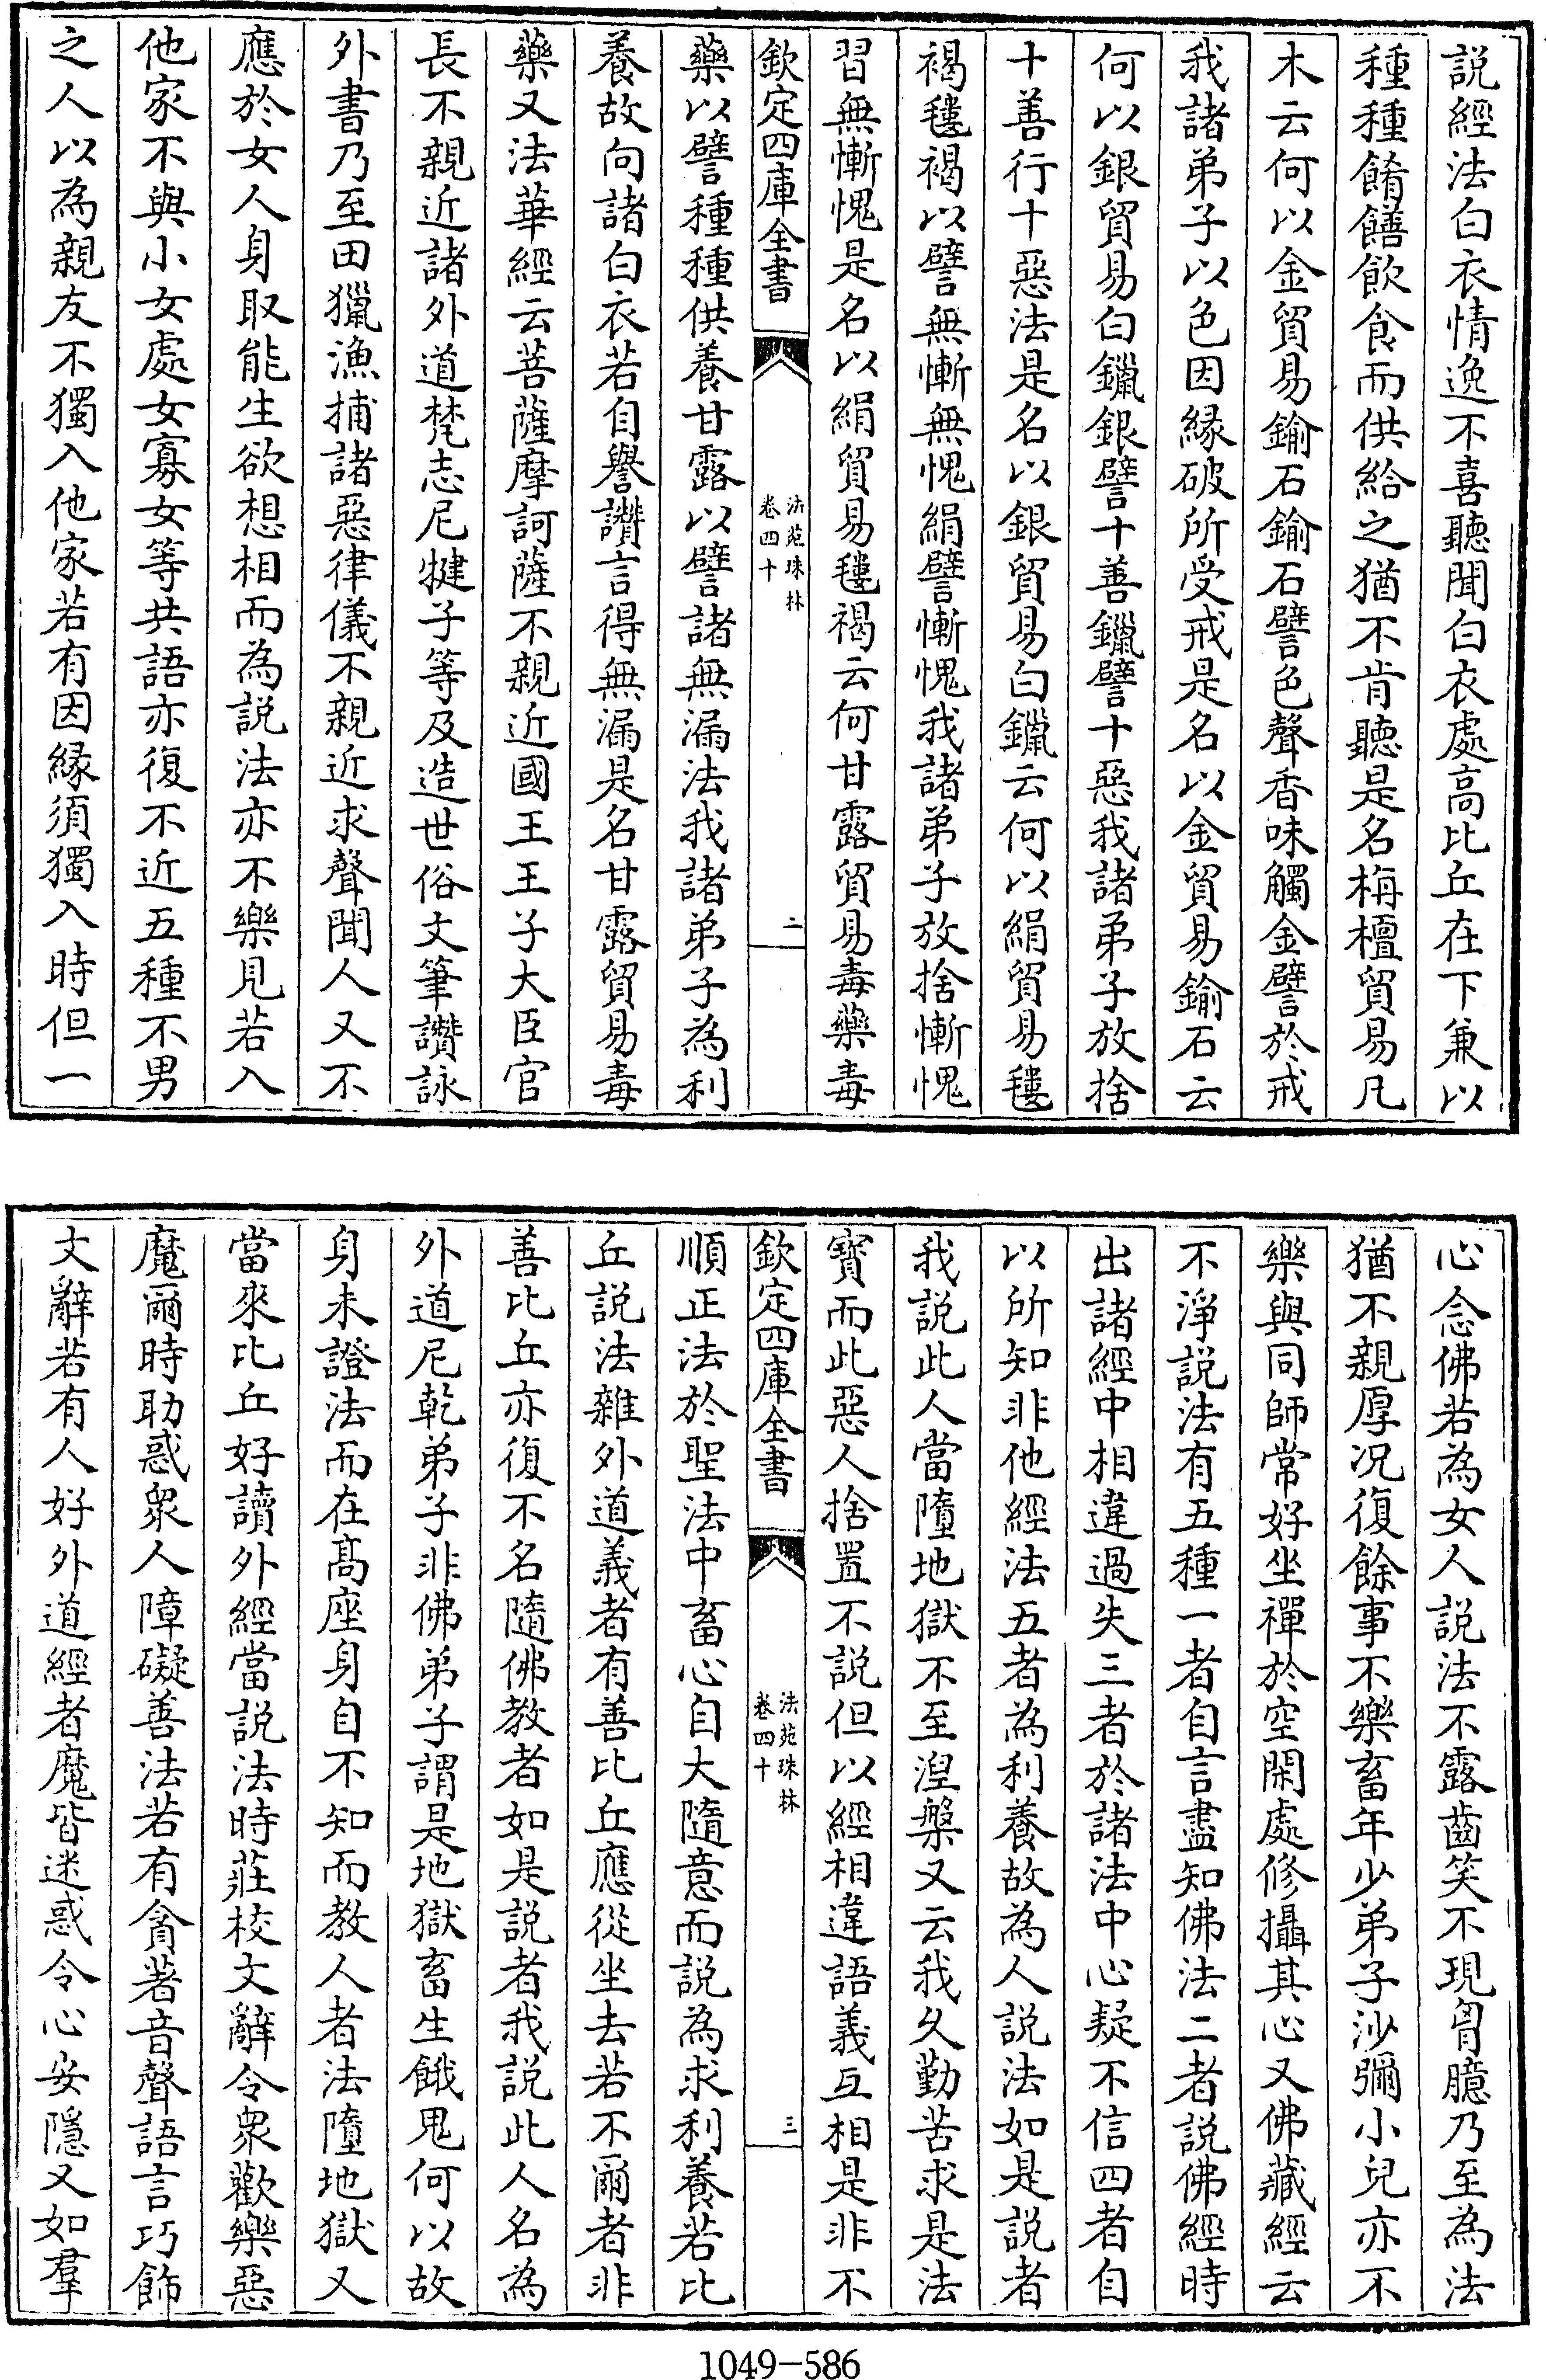 説經法白衣情逸不喜聽聞白衣處髙比丘在下兼以
種種餚饍飲食而供給之猶不肯聽是名栴檀貿易凡
木云何以金貿易鍮石鍮石譬色聲香味觸金譬於戒
我諸弟子以色因縁破所受戒是名以金貿易鍮石云
何以銀貿易白鑞銀譬十善鑞譬十惡我諸弟子放捨
十善行十惡法是名以銀貿易白鑞云何以絹貿易氀
褐氀褐以譬無慚無愧絹譬慚愧我諸弟子放捨慚愧
習無慚愧是名以絹貿易氀褐云何甘露貿易毒藥毒
欽定四庫全書
法苑珠林
卷四十
二
藥以譬種種供養甘露以譬諸無漏法我諸弟子為利
養故向諸白衣若自譽讚言得無漏是名甘露貿易毒
藥又法華經云菩薩摩訶薩不親近國王王子大臣官
長不親近諸外道梵志尼犍子等及造世俗文筆讚詠
外書乃至田獵漁捕諸惡律儀不親近求聲聞人又不
應於女人身取能生欲想相而為説法亦不樂見若入
他家不與小女處女寡女等共語亦復不近五種不男
之人以為親友不獨入他家若有因縁須獨入時但一
心念佛若為女人説法不露齒笑不現胷臆乃至為法
猶不親厚况復餘事不樂畜年少弟子沙彌小兒亦不
樂與同師常好坐禪於空閑處修攝其心又佛藏經云
不淨説法有五種一者自言盡知佛法二者説佛經時
出諸經中相違過失三者於諸法中心疑不信四者自
以所知非他經法五者為利養故為人説法如是説者
我説此人當墮地獄不至涅槃又云我久勤苦求是法
寶而此惡人捨置不説但以經相違語義互相是非不
欽定四庫全書
法苑珠林
卷四十
三
順正法於聖法中畜心自大隨意而説為求利養若比
丘説法雜外道義者有善比丘應從坐去若不爾者非
善比丘亦復不名隨佛教者如是説者我説此人名為
外道尼乾弟子非佛弟子謂是地獄畜生餓鬼何以故
身未證法而在髙座身自不知而教人者法墮地獄又
當來比丘好讀外經當説法時莊校文辭令衆歡樂惡
魔爾時助惑衆人障礙善法若有貪著音聲語言巧飾
文辭若有人好外道經者魔皆迷惑令心安隱又如羣
1049-586